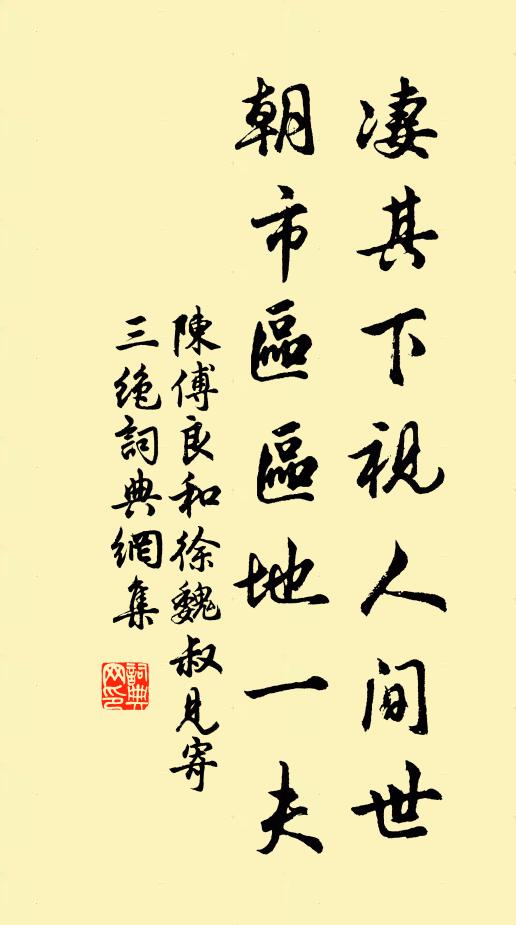 凄其下視人间世
朝市區區地一夫
陳傅良和徐魏叔見寄
三絶詞典網集
詞典
网印